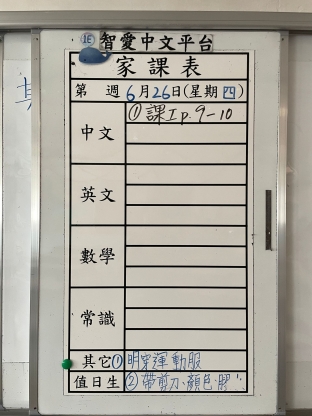 1E 智愛中文平台
家課表
第 週 6月26日(星期四)
中文 ①課工p.9-10
英文
數學
常識
其它 ①明穿運動服
值日生 ②帶剪刀、顏色、膠